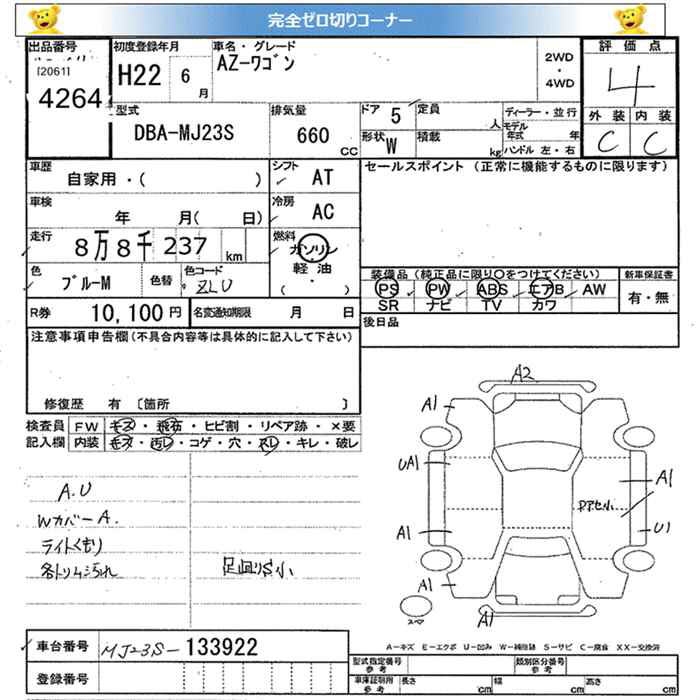 完全ゼロ切りコーナー
出品番号
[2061]
4264
初度登録年月
H22 6 月
車名・グレード
AZ-ワゴン
2WD
・
4WD
評価点
4
外装 内装
C C
型式
DBA-MJ23S
排気量
660 CC
ドア 5
定員 人
形状 W
積載 kg
ディーラー・並行
モデル年式 年
ハンドル 左・右
車歴
自家用・( )
シフト
AT
セールスポイント (正常に機能するものに限ります)
車検
年 月( 日)
冷房
AC
走行
8万8千237 km
燃料
ガソリン
軽油
( ・ )
色
ブルーM
色替
色コード
ZLU
装備品(純正品に限り○をつけてください)
PS PW ABS エアB AW
SR ナビ TV カワ
新車保証書
有・無
R券 10,100円
名変通知期限 月 日
後日品
注意事項申告欄(不具合内容等は具体的に記入して下さい)
修復歴 有 〔箇所 〕
検査員記入欄
FW キズ・飛石・ヒビ割・リペア跡・×要
内装 キズ・汚レ・コゲ・穴・スレ・キレ・破レ
A.U
WカバーA.
ライトくもり
各トリムヨゴレ
足回りS小
A2
A1
UA1
A1
A1
A1
A1
U1
Dアセ小
スペア
A-キズ E-エクボ U-凹み W-補修跡 S-サビ C-腐食 XX-交換済
車台番号 MJ23S-133922
登録番号
型式指定番号
参考
類別区分番号
参考
車庫証明用
参考
長さ cm 幅 cm 高さ cm